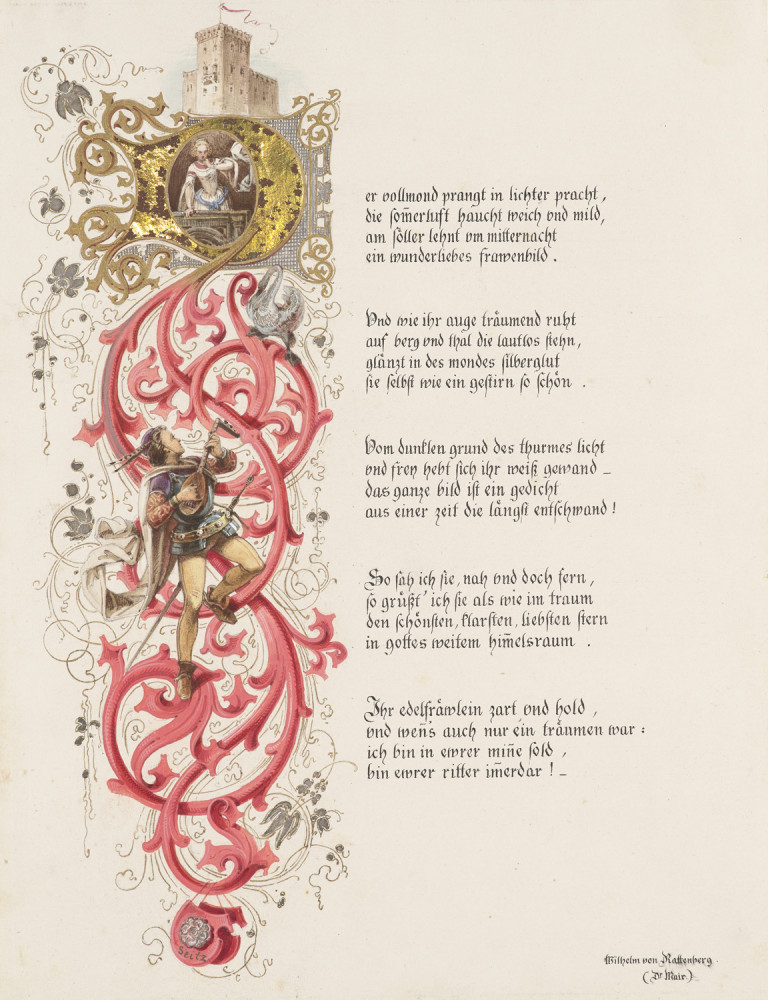 Der vollmond prangt in lichter pracht,
die som̄erluft haucht weich vnd mild,
am söller lehnt vm mitternacht
ein wunderliebes frawenbild.
Vnd wie ihr auge träumend ruht
auf berg vnd thal die lautlos stehn,
glänzt in des mondes silberglut
sie selbst wie ein gestirn so schön.
Vom dunklen grund des thurmes licht
vnd frey hebt sich ihr weiß gewand –
das ganze bild ist ein gedicht
aus einer zeit die längst entschwand!
So sah ich sie, nah vnd doch fern,
so grüßt' ich sie als wie im traum
den schönsten, klarsten, liebsten stern
in gottes weitem him̄elsraum.
Ihr edelfräwlein zart vnd hold,
vnd wen̄'s auch nur ein träumen war:
ich bin in ewrer min̄e sold,
bin ewrer ritter im̄erdar! –
Seitz
Wilhelm von Rattenberg.
(Dr Mair.)